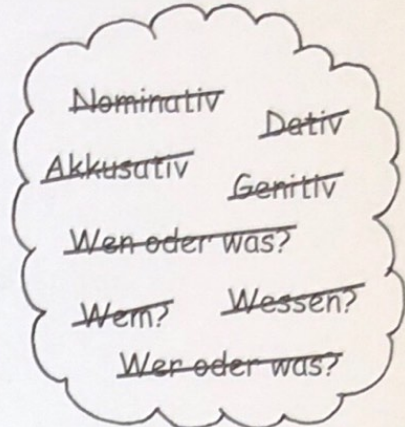 Nominativ
Dativ
Akkusativ
Genitiv
Wen oder was?
Wem?
Wessen?
Wer oder was?